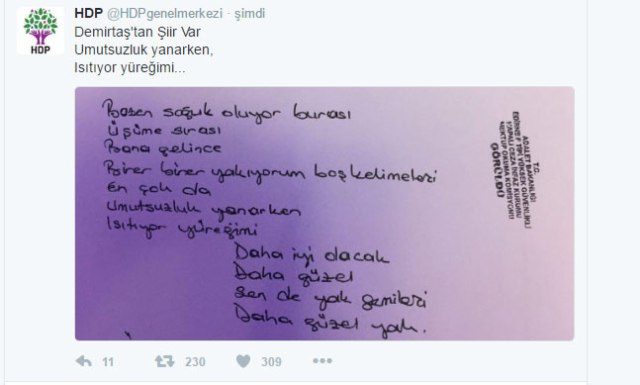 HDP @HDPgenelmerkezi · şimdi
Demirtaş'tan Şiir Var
Umutsuzluk yanarken,
Isıtıyor yüreğimi...
HDP
Bazen soğuk oluyor burası
Üşüme sırası
Bana gelince
Birer birer yakıyorum boş kelimeleri
En çok da
Umutsuzluk yanarken
Isıtıyor yüreğimi
Daha iyi olacak
Daha güzel
Sen de yak gemileri
Daha güzel yak.
T.C.
ADALET BAKANLIĞI
EDİRNE F TİPİ YÜKSEK GÜVENLİKLİ
KAPALI CEZA İNFAZ KURUMU
MEKTUP OKUMA KOMİSYONU
GÖRÜLDÜ
11 230 309